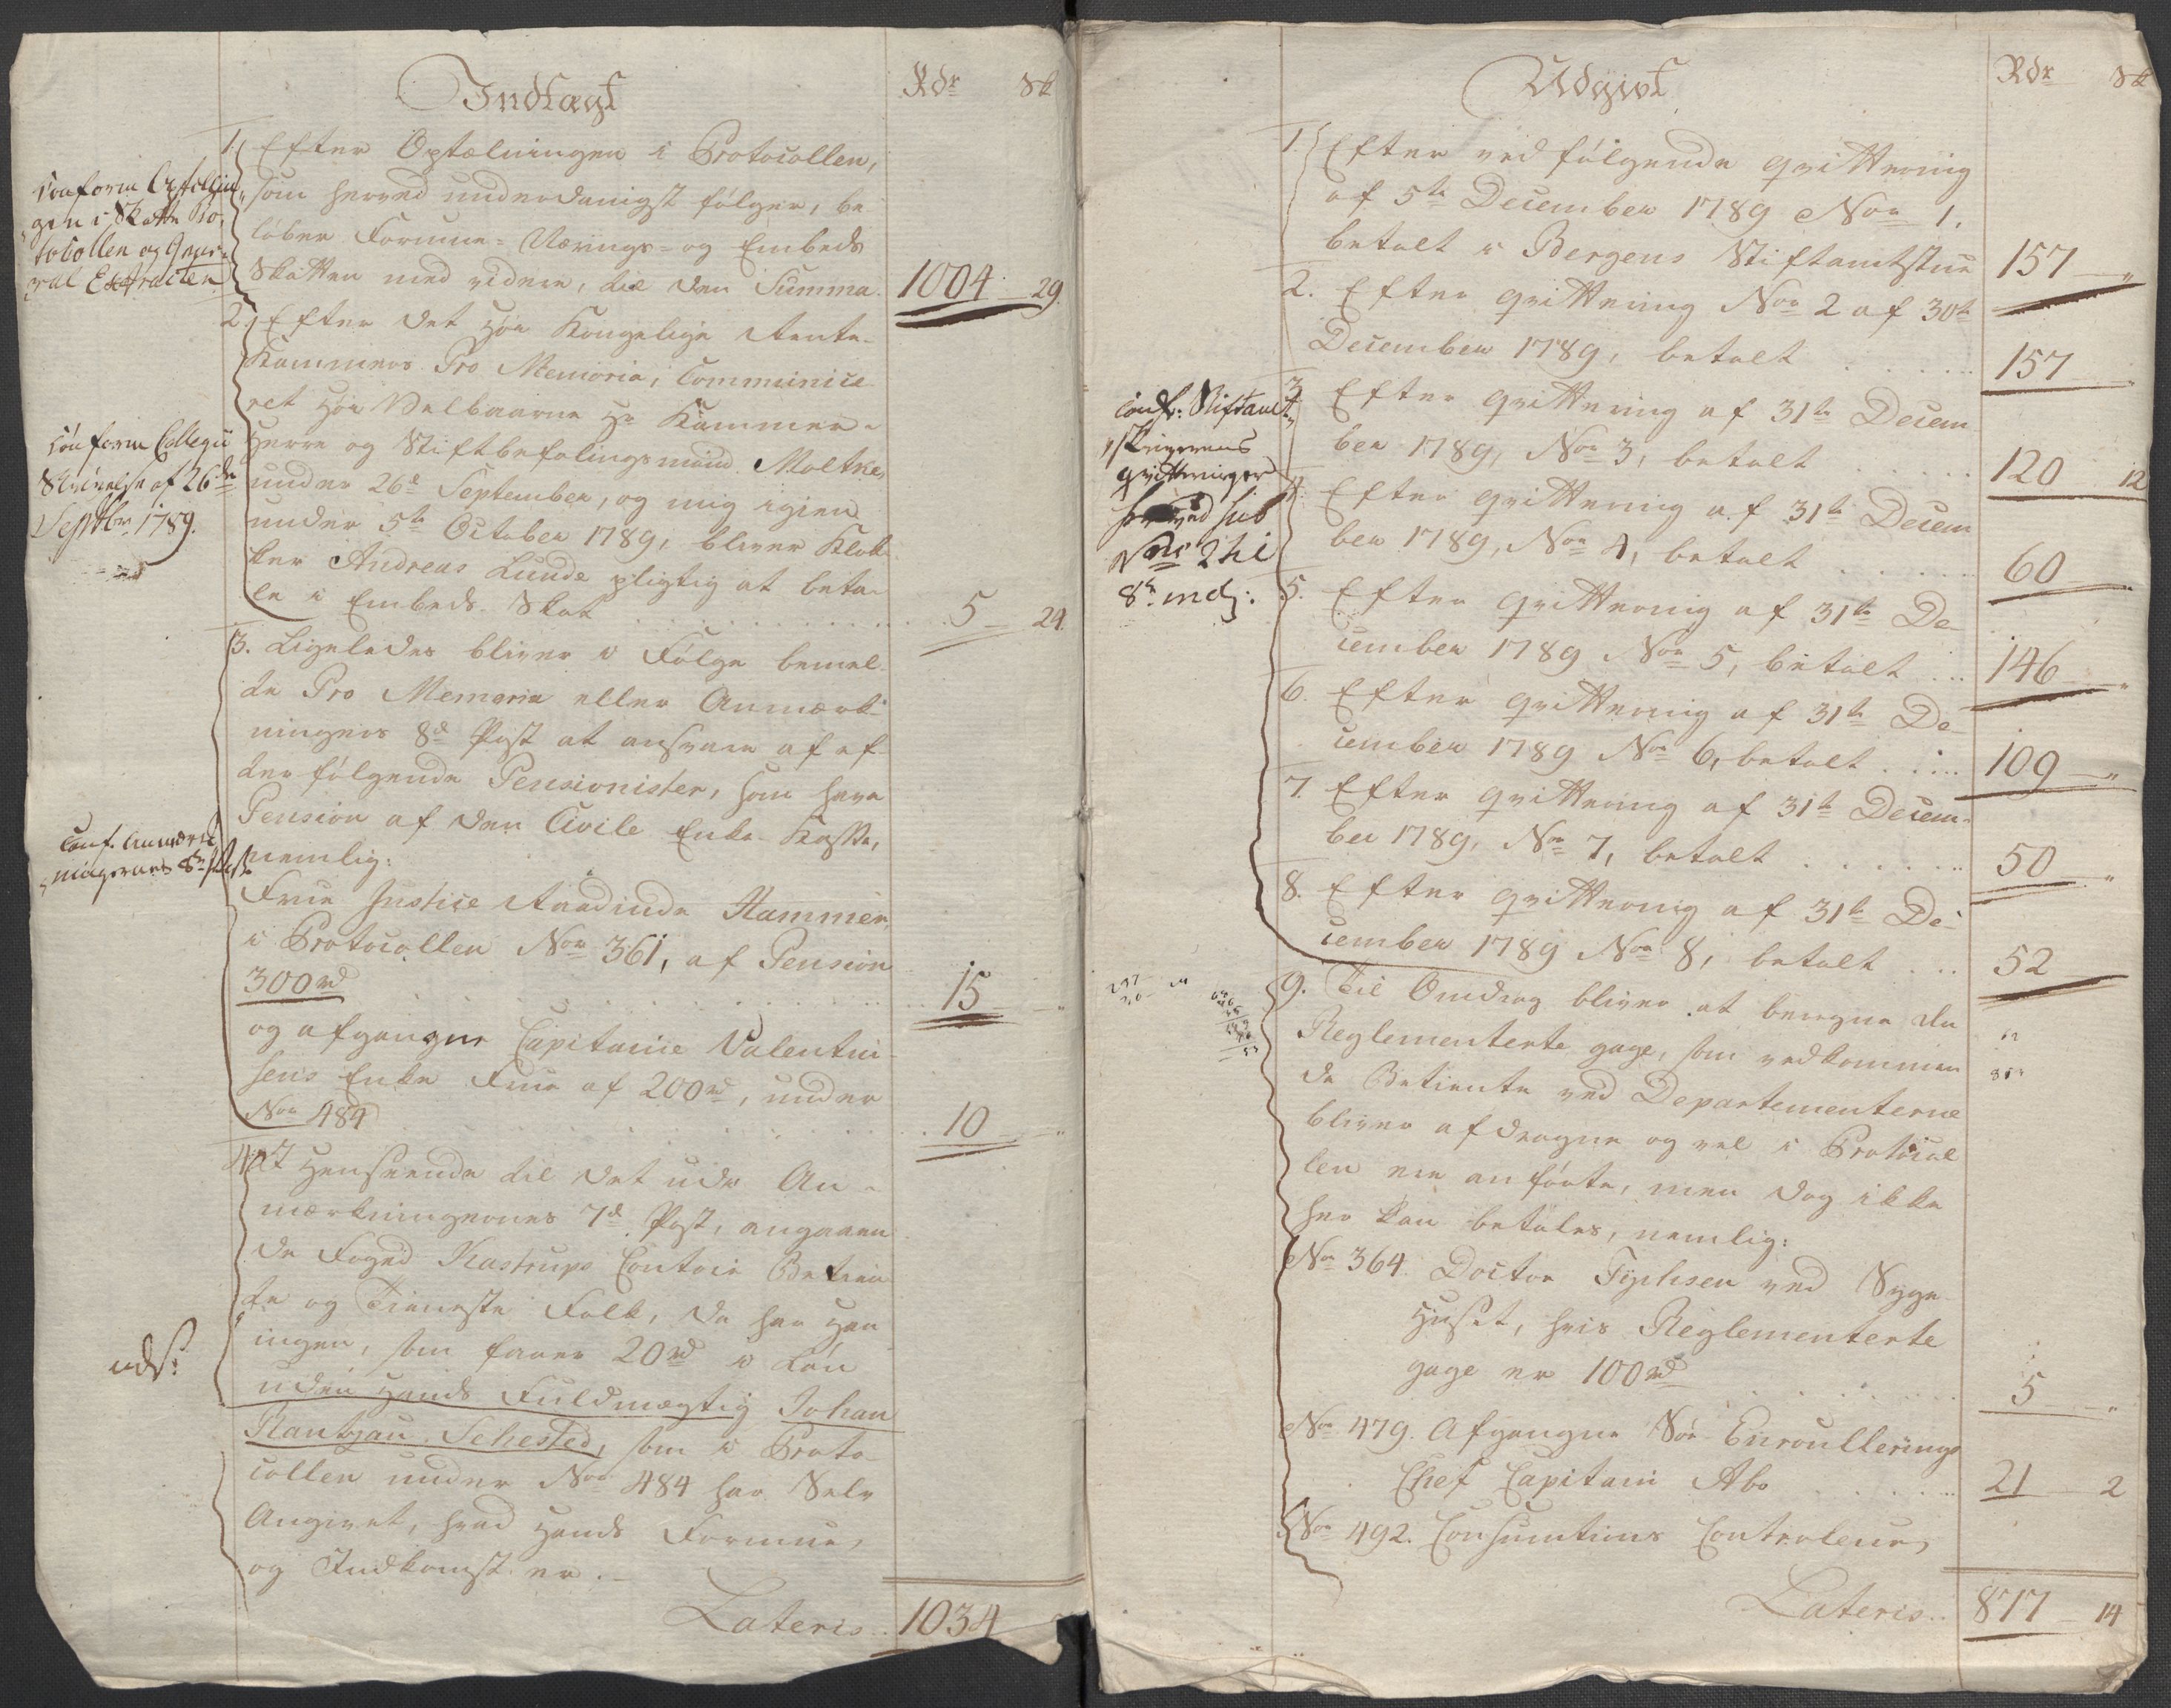 Indtægt
Rdr Sk
1. Efter Optælningen i Protocollen,
som herved underdanigst følger, be
løber Formue- Nærings- og Embeds
Skatten med videre, til den Summa
1004 29
Conform Optællin
gen i Skatte Pro,
tocollen og Gene
ral Extracten
2. Efter det Høie Kongelige Rente-
Kammers Pro Memoria, Communice
ret Høi Velbaarne Hr Kammer-
Herre og Stiftbefalingsmand Moltke,
under 26de September, og mig igien
under 5te October 1789, bliver Klok
ker Andreas Lunde pligtig at beta-
le i Embeds-Skat
5 24
Conform Collegii
Skrivelse af 26de
Septbr 1789.
3. Ligeledes bliver i Følge bemel-
te Pro Memoria eller Anmærk-
ningers 8de Post at ansvare af ef-
terfølgende Pensionister, som have
Pension af den Civile Enke-Kasse,
nemlig:
Conf. Anmærk
ningernes 8de Post
Frue Justice Raadinde Hammer,
i Protocollen Nor 361, af Pension
300rd
15
og afgangne Capitaine Valentin-
sens Enke Frue af 200rd, under
Nor 484
10
4. I Henseende til det udi An-
mærkningernes 7de Post, angaaen
de Foged Kastrups Contoir Betien
te og Tieneste Folk, da har Han
ingen, som faaer 20rd i Løn
uden Hands Fuldmægtig Johan
Rantzau Sehested, som i Proto-
collen under Nor 484 har Selv
Angivet, hvad Hands Formue,
og Indkomst er.
uds:
Lateris 1034
Udgivt
Rdr Sk
1. Efter vedfølgende qvittering
af 5te December 1789 Nor 1,
betalt i Bergens Stiftamtstue
157
2. Efter qvittering Nor 2 af 30te
December 1789, betalt
157
3. Efter qvittering af 31te Decem
ber 1789, Nor 3, betalt
120 12
Conf: Stiftamt
skriverens
qvitteringer
herved sub
Nris 2 til
8de incl:
4. Efter qvittering af 31te Decem
ber 1789, Nor 4, betalt
60
5. Efter qvittering af 31te De-
cember 1789 Nor 5, betalt
146
6. Efter qvittering af 31te De-
cember 1789 Nor 6, betalt
109
7. Efter qvittering af 31te Decem-
ber 1789, Nor 7, betalt
50
8. Efter qvittering af 31te De-
cember 1789 Nor 8, betalt
52
9. Til Omdrag bliver at beregne de
Reglementerte gage, som vedkommen
de Betiente ved Departementerne
bliver afdragne og vel i Protocol
len ere anførte, men dog ikke
her kan betales, nemlig:
Nor 364. Doctor Fyhsen ved Syge
Huset, hvis Reglementerte
gage er 100rd
5
Nor 479. Afgangne Søe Enroullerings
Chef Capitain Abo
21 2
Nor 492. Consumtions Controleur,
Lateris 877 14